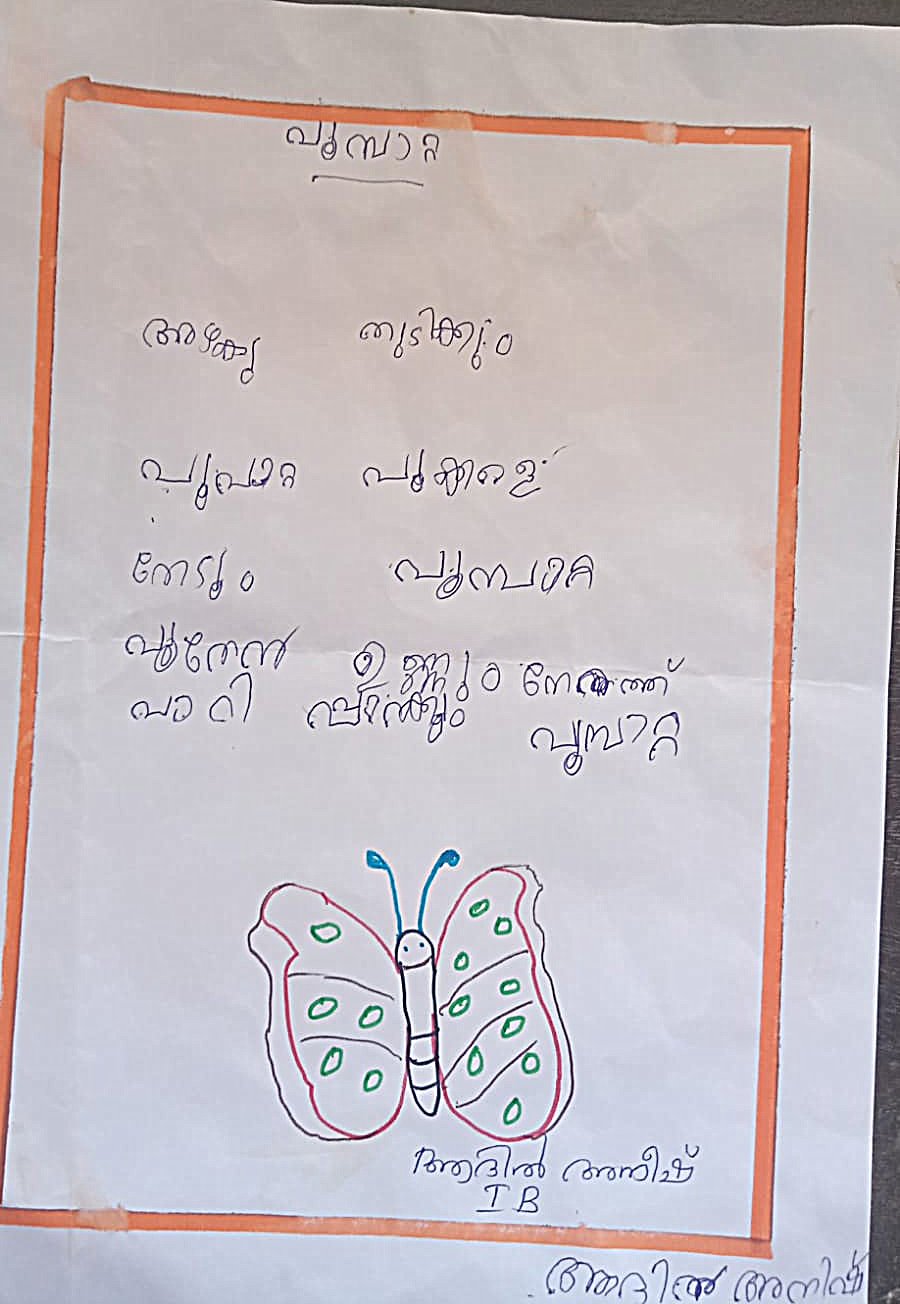 പൂമ്പാറ്റ
അഴകു തുടിക്കും
പൂപാറ്റ പൂക്കളെ
തേടും പൂമ്പാറ്റ
പൂതേൻ ഉണ്ണും നേരത്ത്
പാറി പൂമ്പാറ്റ
ആദിൽ അനീഷ്
I B
ആദിൽ അനിഷ്